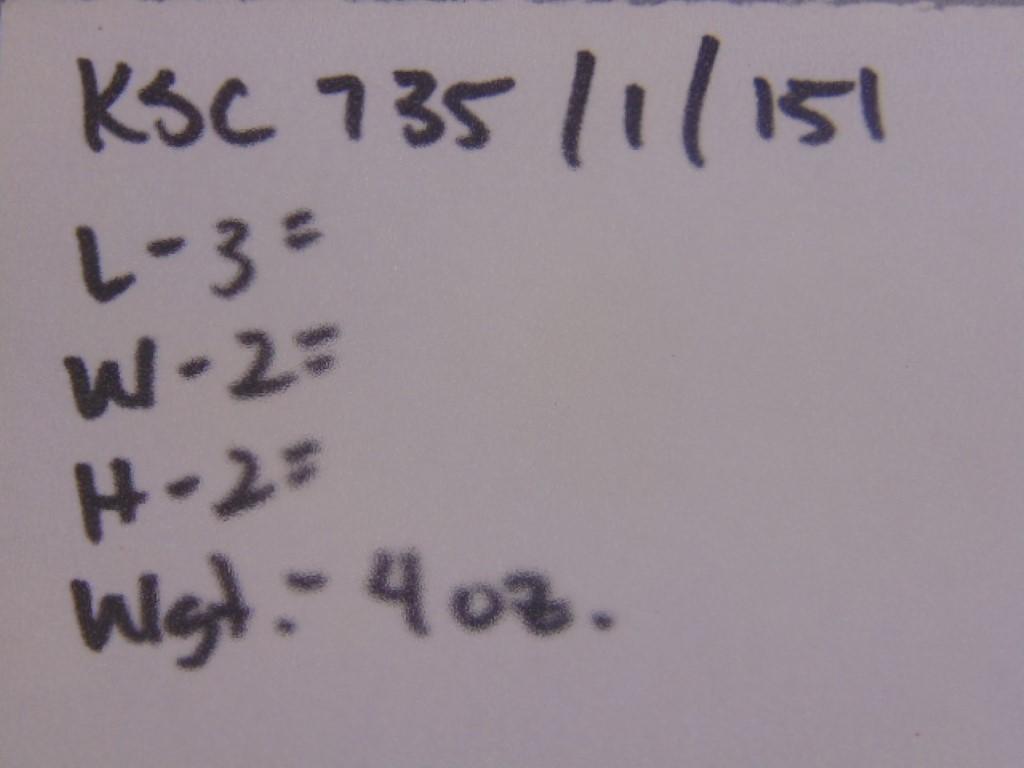 KSC 735/1/151
L - 3 =
W - 2 =
H - 2 =
Wgt. - 4 oz.